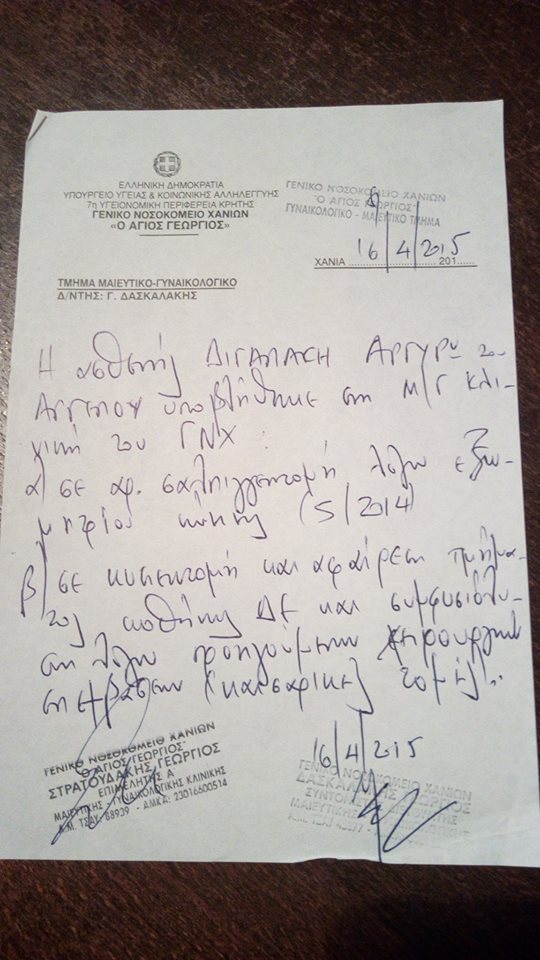 ΕΛΛΗΝΙΚΗ ΔΗΜΟΚΡΑΤΙΑ
ΥΠΟΥΡΓΕΙΟ ΥΓΕΙΑΣ & ΚΟΙΝΩΝΙΚΗΣ ΑΛΛΗΛΕΓΓΥΗΣ
7η ΥΓΕΙΟΝΟΜΙΚΗ ΠΕΡΙΦΕΡΕΙΑ ΚΡΗΤΗΣ
ΓΕΝΙΚΟ ΝΟΣΟΚΟΜΕΙΟ ΧΑΝΙΩΝ
«Ο ΑΓΙΟΣ ΓΕΩΡΓΙΟΣ»
ΓΕΝΙΚΟ ΝΟΣΟΚΟΜΕΙΟ ΧΑΝΙΩΝ
"Ο ΑΓΙΟΣ ΓΕΩΡΓΙΟΣ"
ΓΥΝΑΙΚΟΛΟΓΙΚΟ - ΜΑΙΕΥΤΙΚΟ ΤΜΗΜΑ
16/4/2015
ΧΑΝΙΑ ........................ 201......
ΤΜΗΜΑ ΜΑΙΕΥΤΙΚΟ-ΓΥΝΑΙΚΟΛΟΓΙΚΟ
Δ/ΝΤΗΣ: Γ. ΔΑΣΚΑΛΑΚΗΣ
Η ασθενής ΔΙΓΑΛΑΚΗ ΑΡΓΥΡΩ του
ΑΓΓΕΛΟΥ υποβλήθηκε στη Μ/Γ Κλι-
νική του ΓΝΧ
α) σε αρ. σαλπιγγεκτομή λόγω εξω-
μητρίου κύησης (5/2014)
β) σε κυστεκτομή και αφαίρεση τμήμα-
τος ωοθήκης ΔΕ και συμφυσιόλυ-
ση λόγω προηγούμενων χειρουργικών
επεμβάσεων (καισαρικές τομές).
ΓΕΝΙΚΟ ΝΟΣΟΚΟΜΕΙΟ ΧΑΝΙΩΝ
"Ο ΑΓΙΟΣ ΓΕΩΡΓΙΟΣ"
ΣΤΡΑΤΟΥΔΑΚΗΣ ΓΕΩΡΓΙΟΣ
ΕΠΙΜΕΛΗΤΗΣ Α
ΜΑΙΕΥΤΙΚΗΣ - ΓΥΝΑΙΚΟΛΟΓΙΚΗΣ ΚΛΙΝΙΚΗΣ
Α.Μ. ΤΣΑΥ: 88939 - ΑΜΚΑ: 23016600514
16/4/2015
ΓΕΝΙΚΟ ΝΟΣΟΚΟΜΕΙΟ ΧΑΝΙΩΝ
ΔΑΣΚΑΛΑΚΗΣ ΓΕΩΡΓΙΟΣ